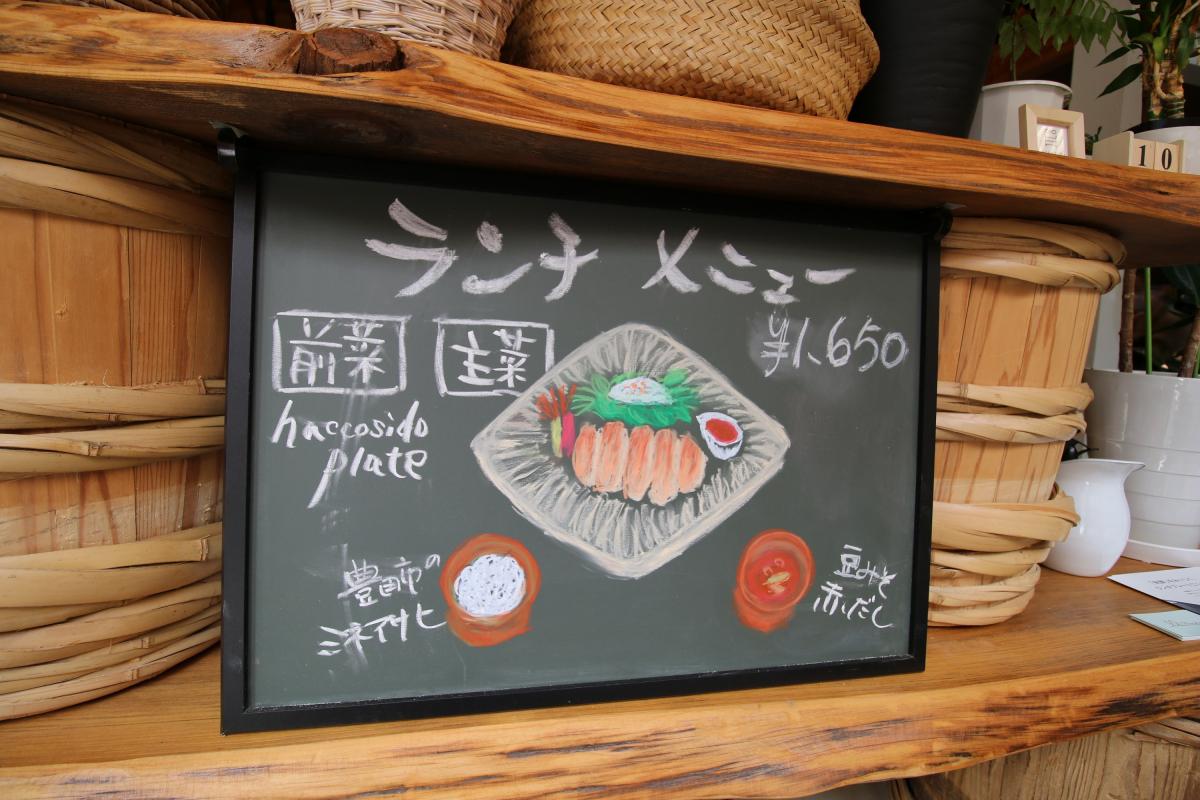 ランチ メニュー
¥1,650
前菜
主菜
haccosido
plate
豊田市の
ミネアサヒ
豆みそ
赤だし
10